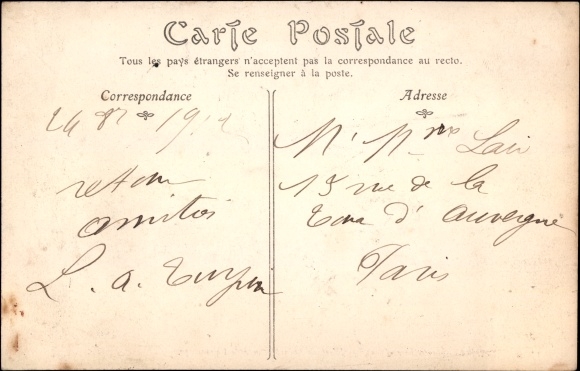 Carte Postale
Tous les pays étrangers n'acceptent pas la correspondance au recto.
Se renseigner à la poste.
Correspondance
Adresse
retour
amitiés
L. a.
Mr Mme
15 rue de la
Tour d'auvergne
Paris